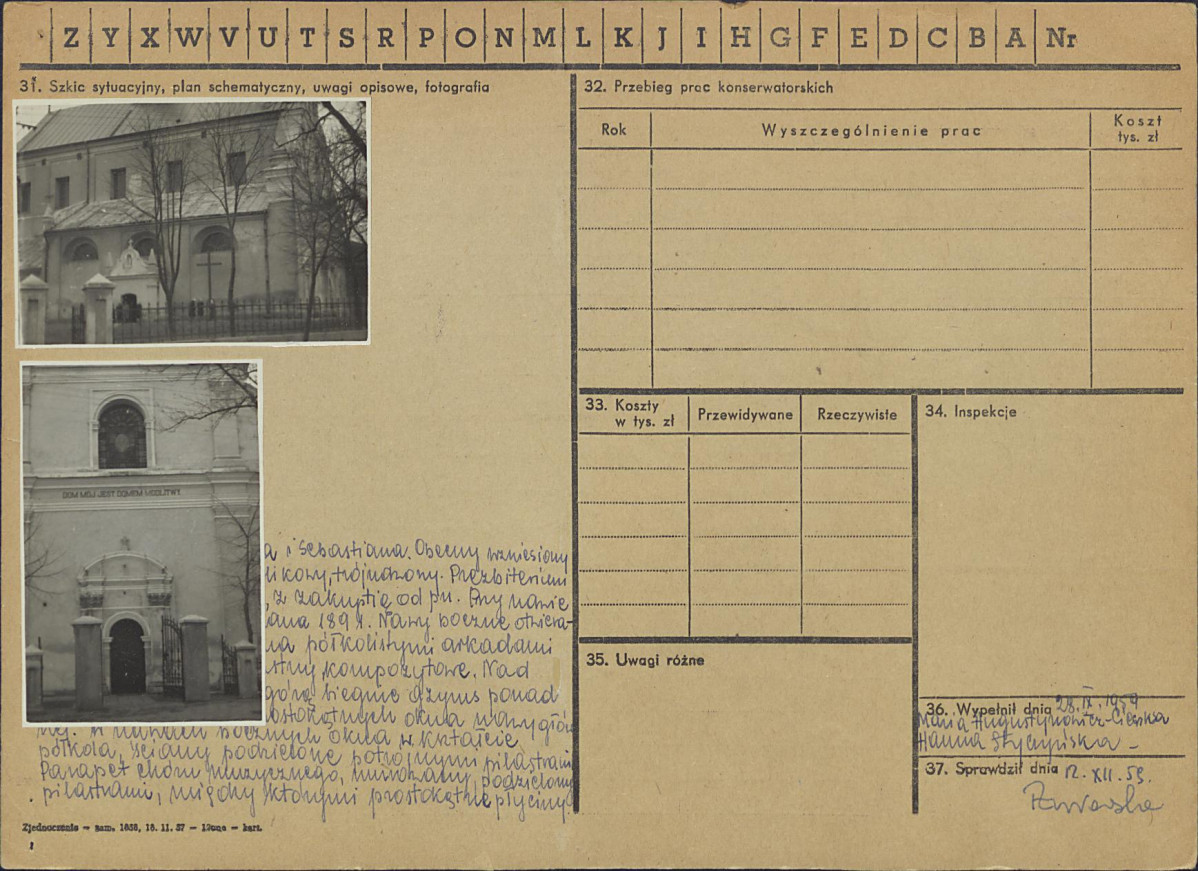 Z Y X W V U T S R P O N M L K J I H G F E D C B A Nr
31. Szkic sytuacyjny, plan schematyczny, uwagi opisowe, fotografia
DOM MÓJ JEST DOMEM MODLITWY.
a i Sebastiana. Obecny wzniesiony
likowy, trójnawowy. Prezbiterium
, z zakrystią od pn. Przy nawie
ana 1897. Nawy boczne otwiera-
na półkolistymi arkadami
kompozytowe. Nad
górą biegnie gzyms ponad
ostokątnych okna nawy głów
nej. W nawach bocznych okna w kształcie
półkola, ściany podzielone potrójnymi pilastrami
Parapet chóru muzycznego, murowany, podzielony
pilastrami, między którymi prostokątne płyciny.
Zjednoczenie – zam. 1638, 16. 11. 57 – – kart.
32. Przebieg prac konserwatorskich
Rok
Wyszczególnienie prac
Koszt
tys. zł
33. Koszty
w tys. zł
Przewidywane
Rzeczywiste
34. Inspekcje
35. Uwagi różne
36. Wypełnił dnia 28.IX.1959
Maria Augustynowicz-Ciecska
Hanna Styczyńska –
37. Sprawdził dnia 12. XII. 59.